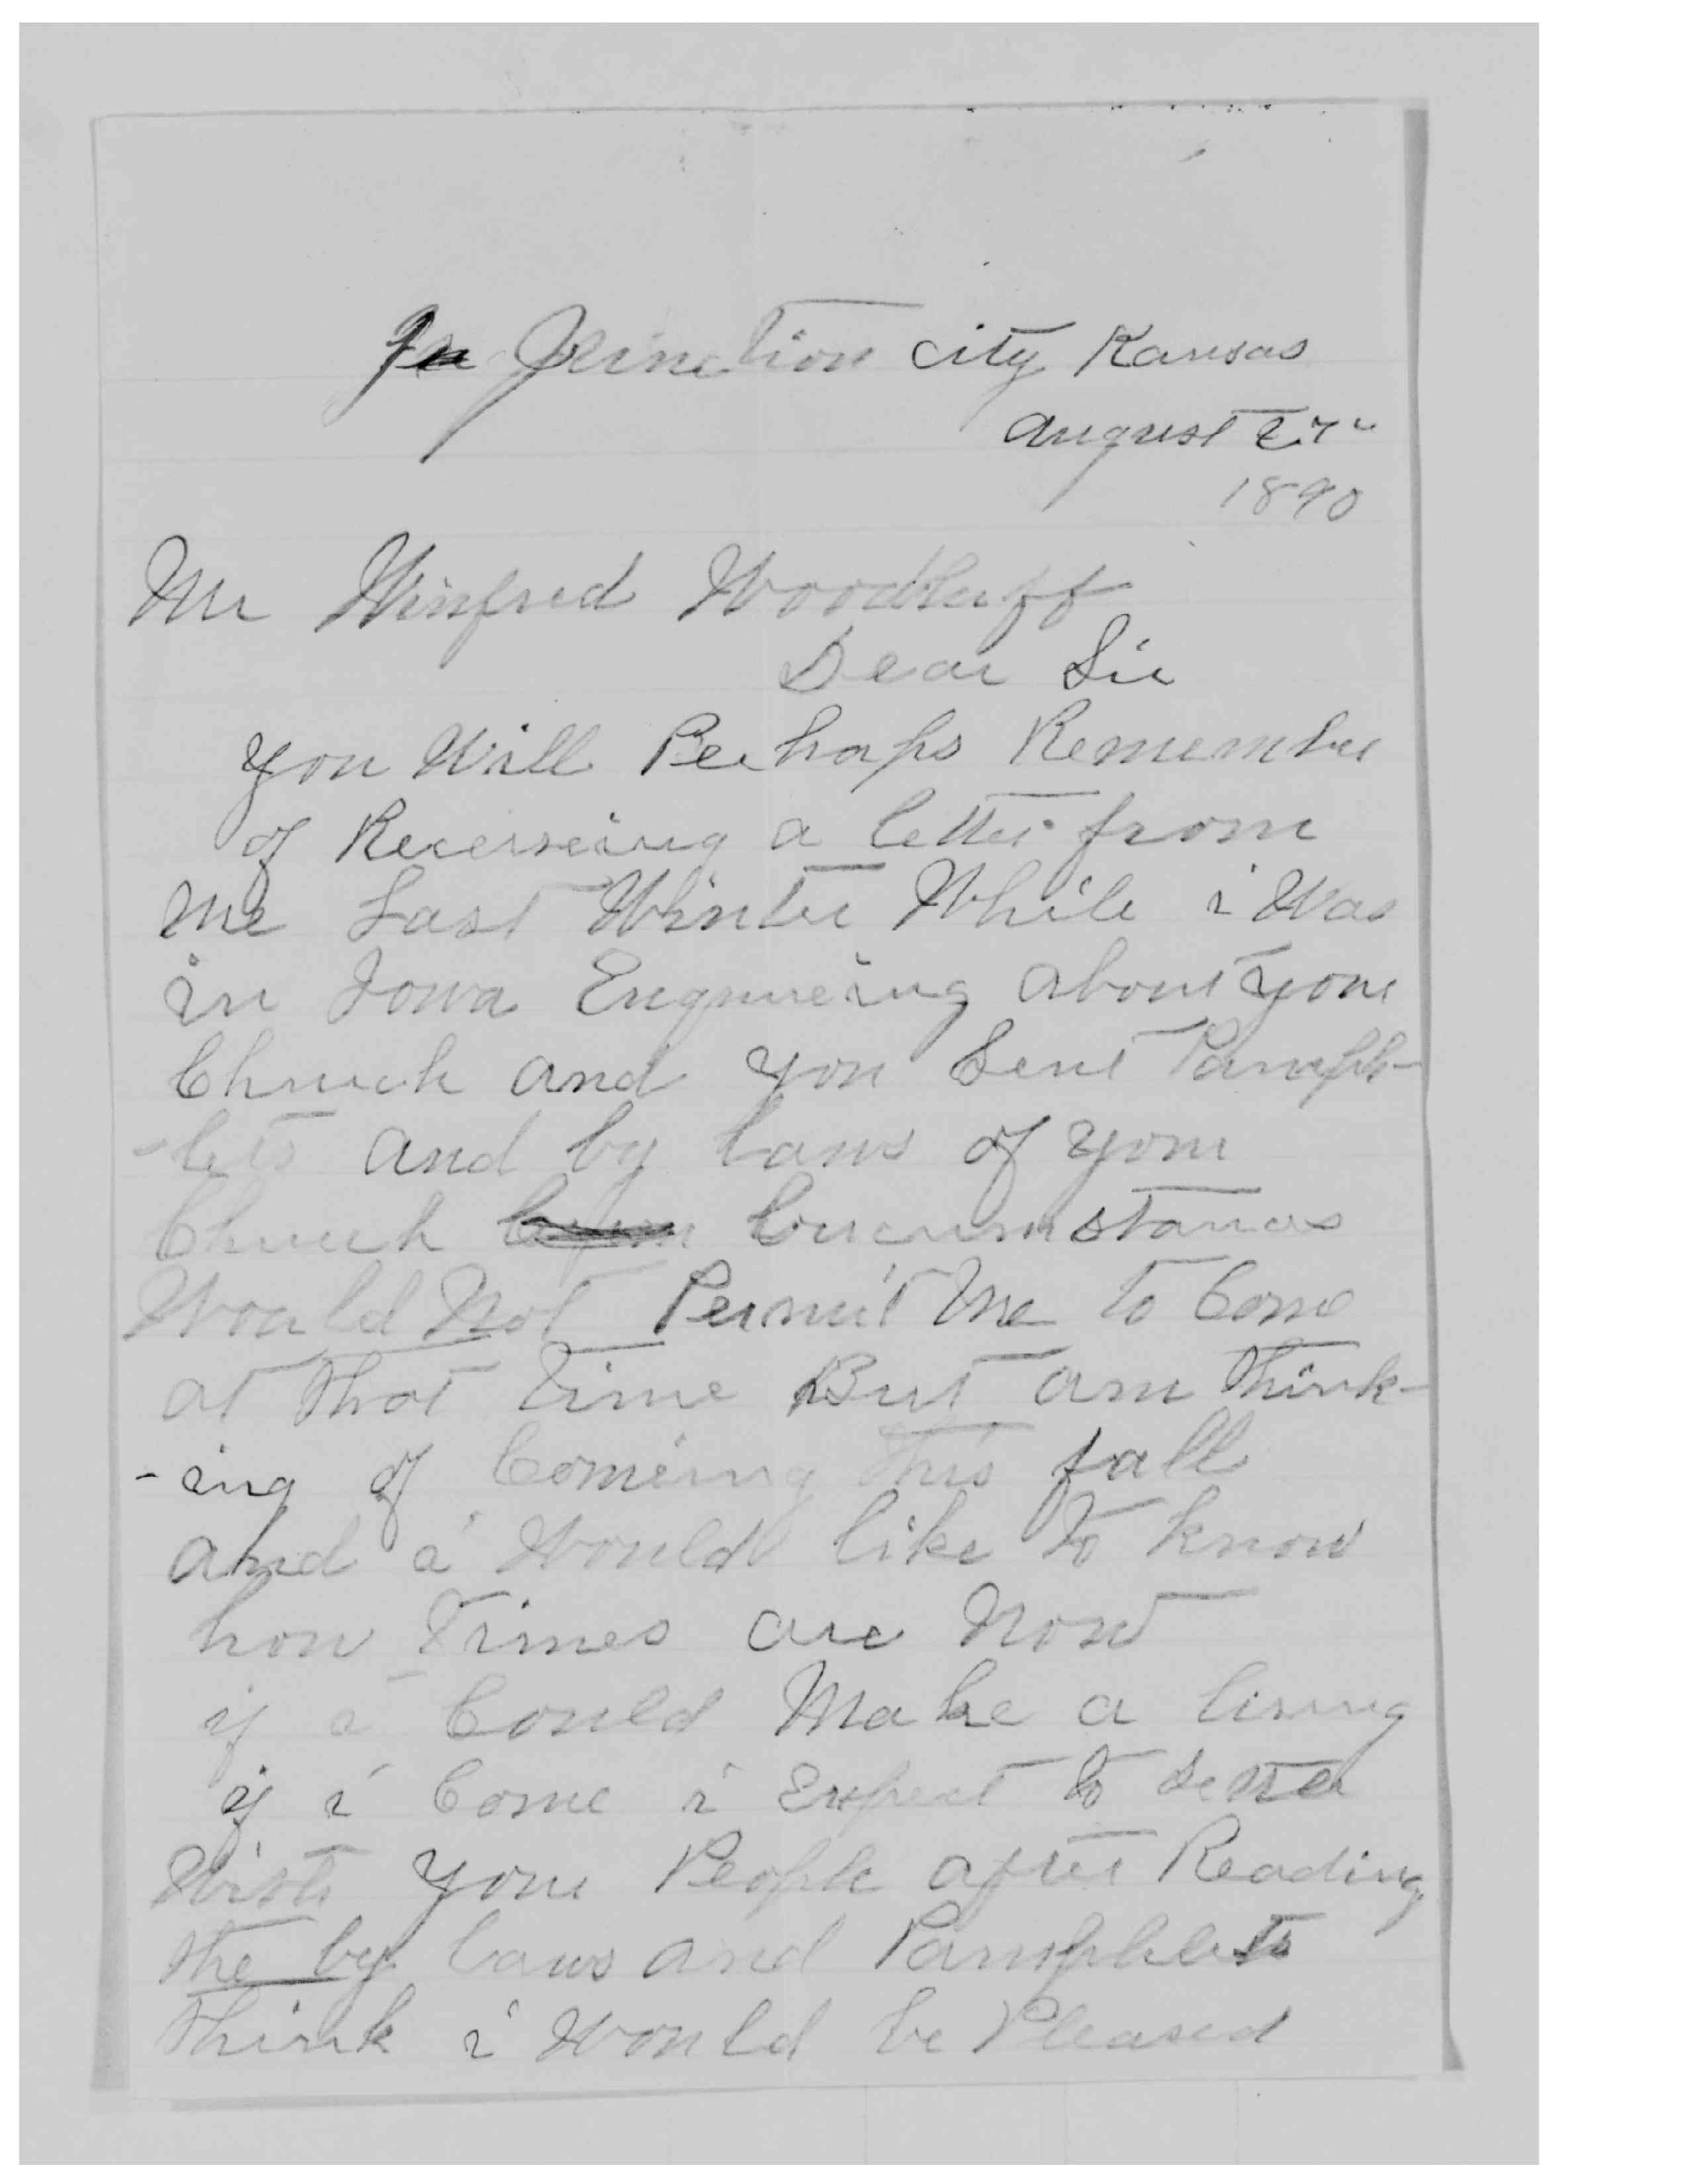 Junction city Kansas
august 27
1890
Mr Winfred Woodruff
Dear Sir
you Will Perhaps Remember
of Receiveing a letter from
me Last Winter While i Was
in Iowa Enqureing about your
Church and you Sent Pamph-
-lets and by laws of your
Church Circumstances
Would Not Permit me to Come
at that time But am think-
-ing of Comeing this fall
and i Would like to know
how Times are Now
if i Could Make a living
if i Come i Expect to
With your People after Reading
the by laws and Pamphlets
think i Would be Pleased